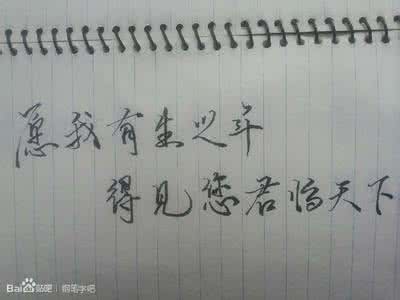 愿我有生之年
得见您君临天下
Bai百度贴吧 | 钢笔字吧